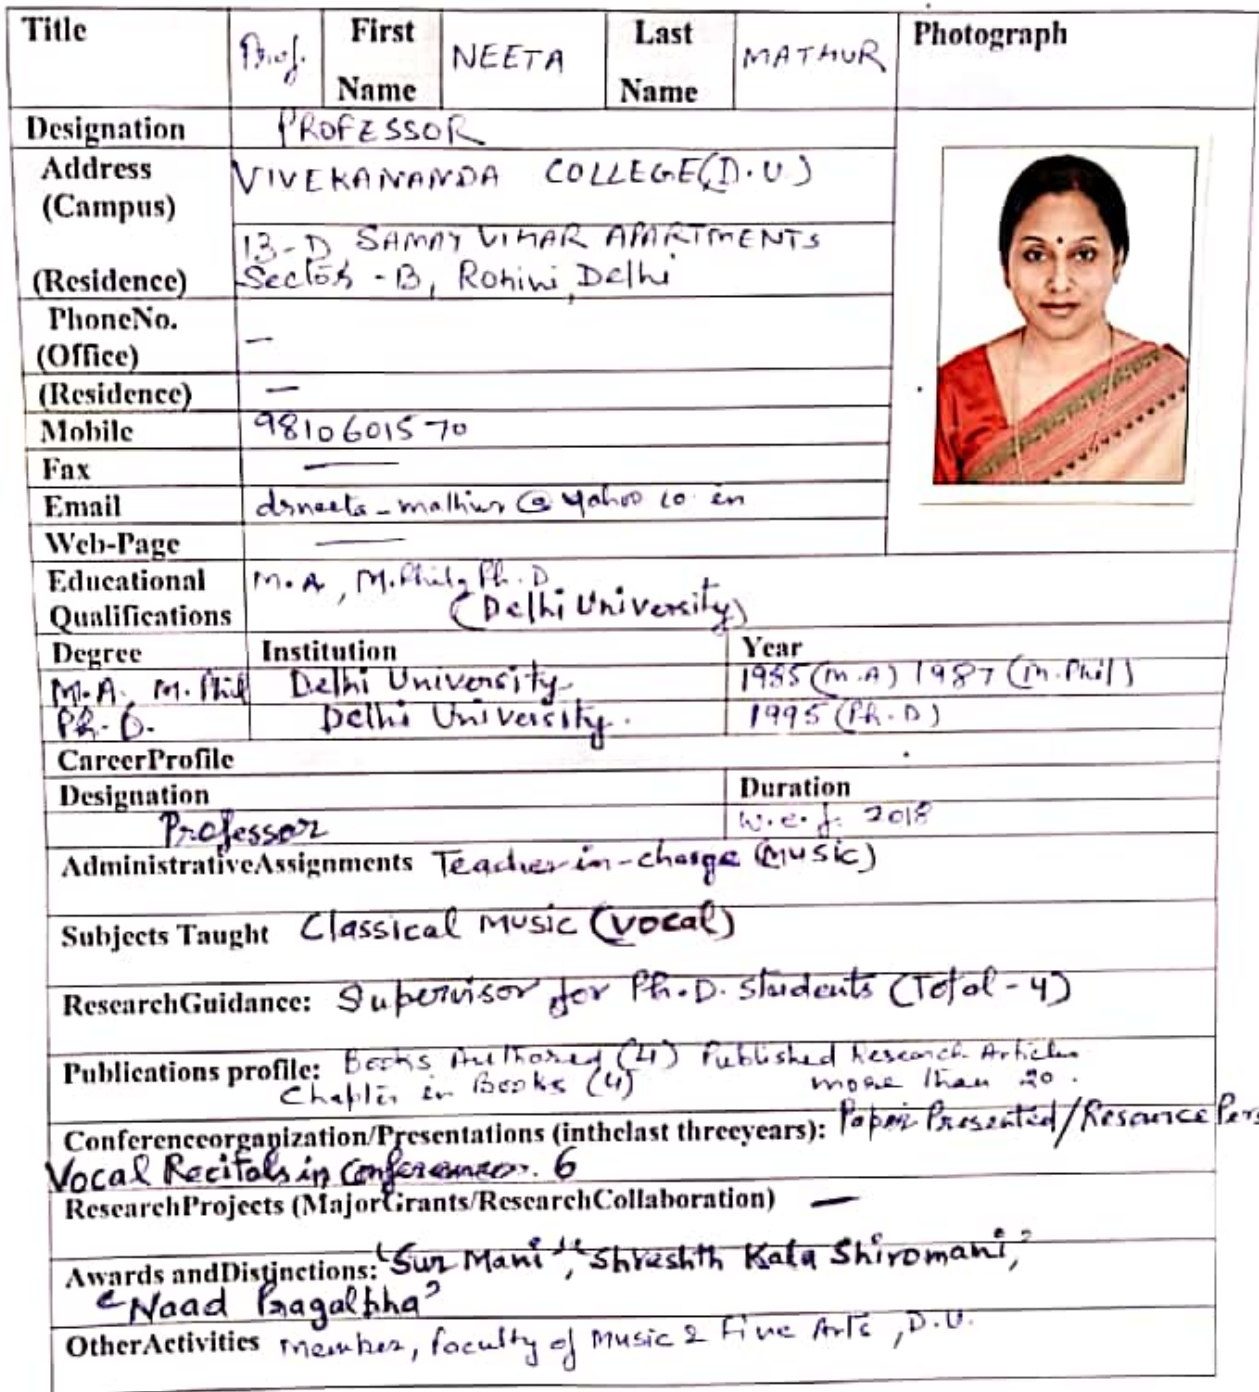 Title Prof. First Name NEETA Last Name MATHUR Photograph
Designation PROFESSOR
Address (Campus) VIVEKANANDA COLLEGE (D.U)
(Residence) 13-D SAMAY VIHAR APARTMENTS
Sector - B, Rohini, Delhi
PhoneNo. (Office) —
(Residence) —
Mobile 9810601570
Fax —
Email drneeta_mathur@yahoo.co.in
Web-Page —
Educational Qualifications M.A, M.Phil, Ph.D
(Delhi University)
Degree Institution Year
M.A. M.Phil Delhi University 1985 (M.A) 1987 (M.Phil)
Ph.D. Delhi University. 1995 (Ph.D)
CareerProfile
Designation Duration
Professor w.e.f. 2018
AdministrativeAssignments Teacher in-charge (Music)
Subjects Taught Classical Music (Vocal)
ResearchGuidance: Supervisor for Ph.D. Students (Total - 4)
Publications profile: Books Authored (4) Published Research Articles
Chapter in Books (4) more than 20.
Conferenceorganization/Presentations (inthelast threeyears): Paper Presented/Resource Pers
Vocal Recitals in Conferences. 6
ResearchProjects (MajorGrants/ResearchCollaboration) —
Awards andDistinctions: 'Sur Mani', 'Shreshth Kala Shiromani,'
'Naad Pragalbha'
OtherActivities Member, faculty of Music & Fine Arts, D.U.